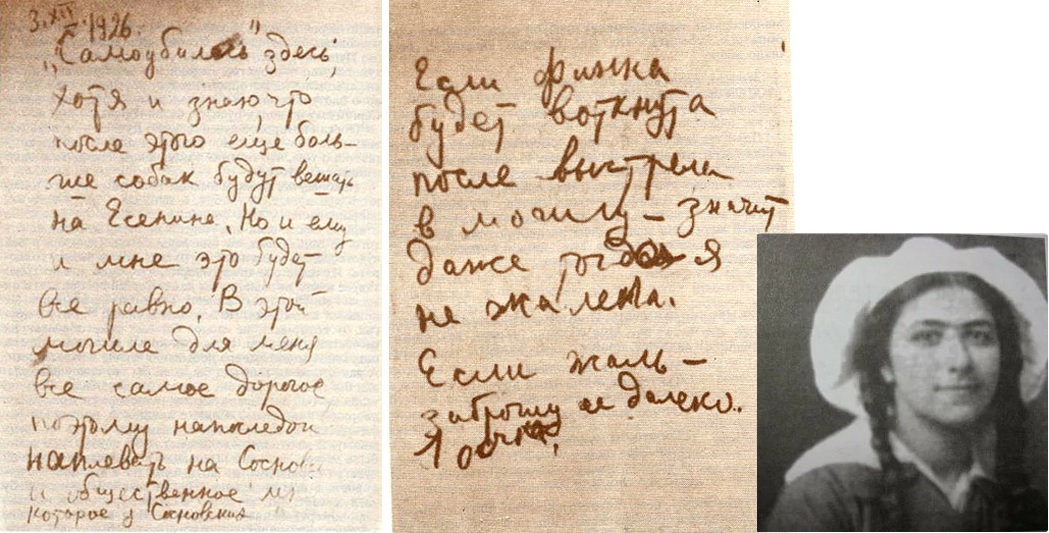 3.XII.1926.
„Самоубилась" здесь,
хотя и знаю, что
после этого еще боль-
ше собак будут вешать
на Есенина. Но и ему
и мне это будет
все равно. В этой
могиле для меня
все самое дорогое,
поэтому напоследок
наплевать на Соснов
и общественное
которое у Сосновских
Если финка
будет воткнута
после выстрела
в могилу — значит
даже тогда я
не жалела.
Если жаль —
заброшу ее далеко..
1 осечка.